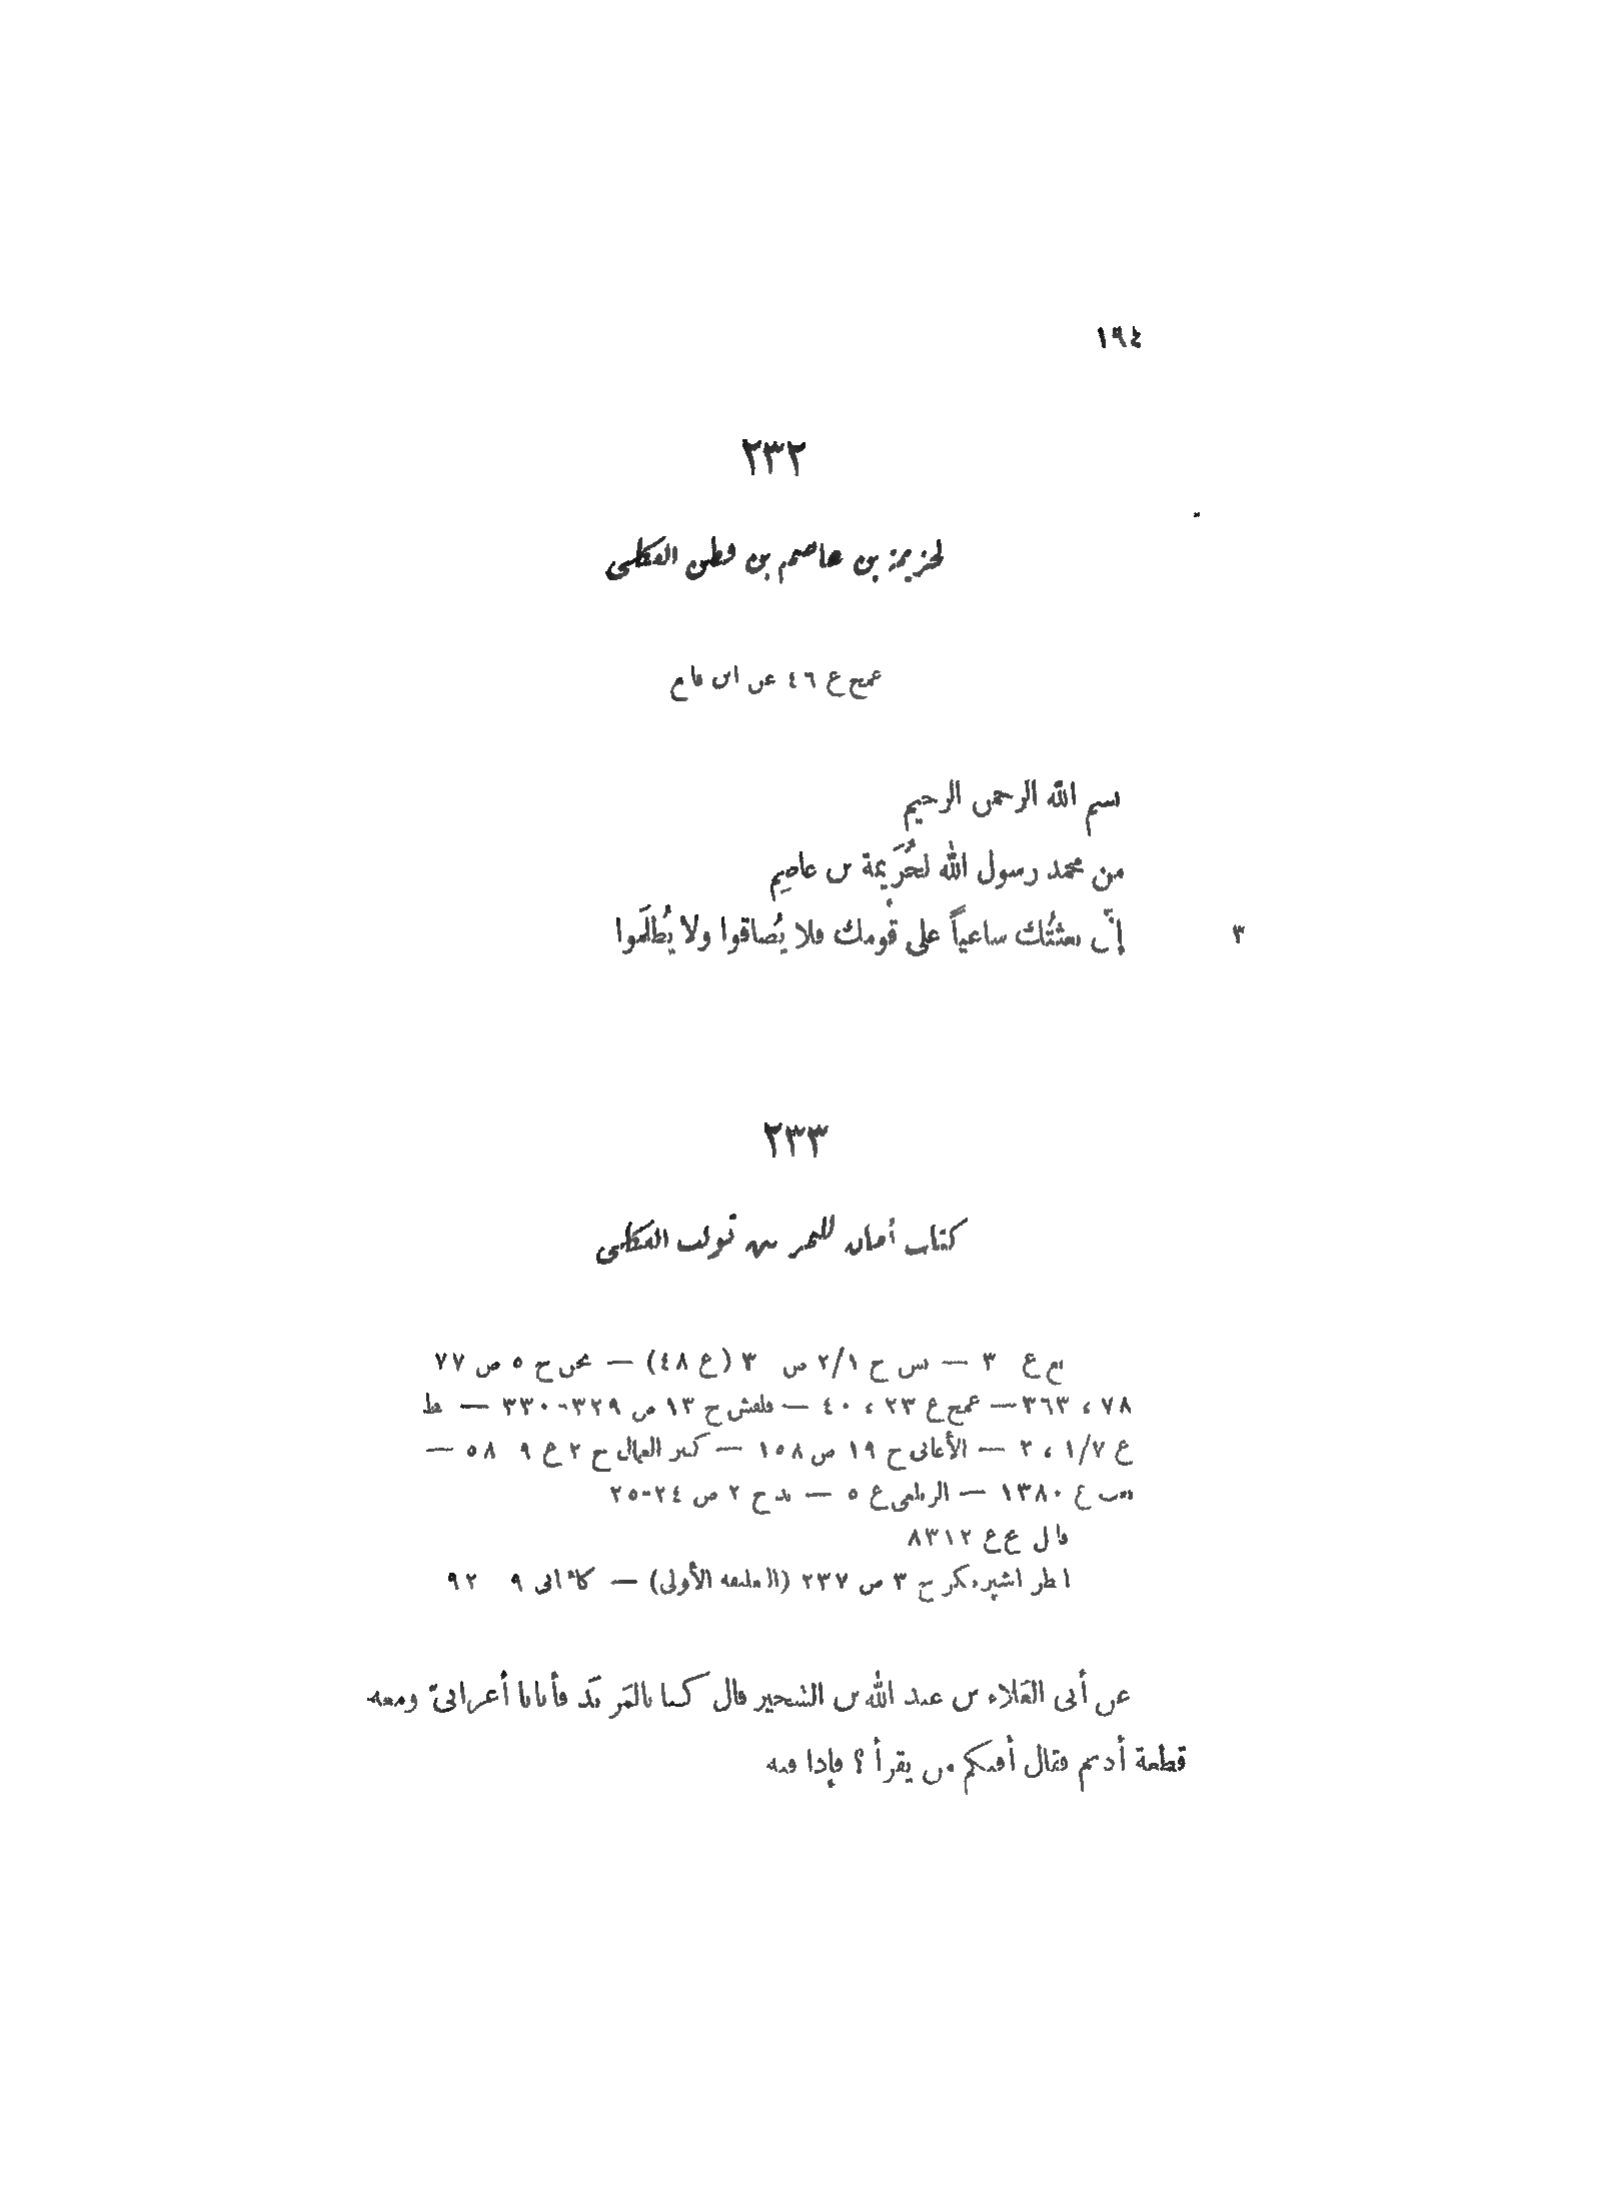 ١٩٤
٢٣٢
لخزيمة بن عاصم بن قطن العكلى
عمخ ع ٤٦ عن ابن قانع
بسم الله الرحمن الرحيم
من محمد رسول الله لخُزَيمة بن عاصِمٍ
٣ إنّى بعثتُك ساعياً على قومك فلا يُضاقوا ولا يُظلَموا
٢٣٣
كتاب أمان للنمر بن تولب العكلى
بع ع ٣ — بس ج ٢/١ ص ٣ (ع ٤٨) — بحن ج ٥ ص ٧٧
٧٨ ، ٣٦٣ — عمخ ع ٢٣ ، ٤٠ — قلقش ج ١٣ ص ٣٢٩-٣٣٠ — بط
ع ١/٧ ، ٢ — الأغانى ج ١٩ ص ١٥٨ — كنز العمال ج ٢ ع ٩ ٥٨ —
ع ١٣٨٠ — الزيلعى ع ٥ — بد ج ٢ ص ٢٤-٢٥
قابل عع ٨٣١٢
انظر اشپرنكر ج ٣ ص ٢٣٧ (التعليقة الأولى) — كائتانى ٩ ٩٢
عن أبى العَلاء بن عبد الله بن الشخير قال كنا بالمَربَد فأتانا أعرابىّ ومعه
قطعة أديم فقال أفيكم من يقرأ ؟ فإذا فيه